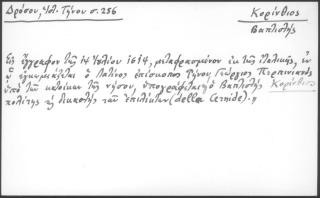 Δρόσου, Ἱστ. Τήνου σ. 256
Κορίνθιος
Βαπτιστής
Εἰς ἔγγραφον τῆς 14 Ἰουλίου 1614, μεταφρασμένον ἐκ τῆς ἰταλικῆς, ἐν
ᾧ ἐγκωμιάζεται ὁ Λατῖνος ἐπίσκοπος Τήνου Γεώργιος Περπινιανὸς
ὑπὸ τῶν κατοίκων τῆς νήσου, ὑπογράφεται ὁ Βαπτιστὴς Κορίνθιος
πολίτης τῆς διαλεκτῆς τῶν ὁπλιτῶν (della Cernide).